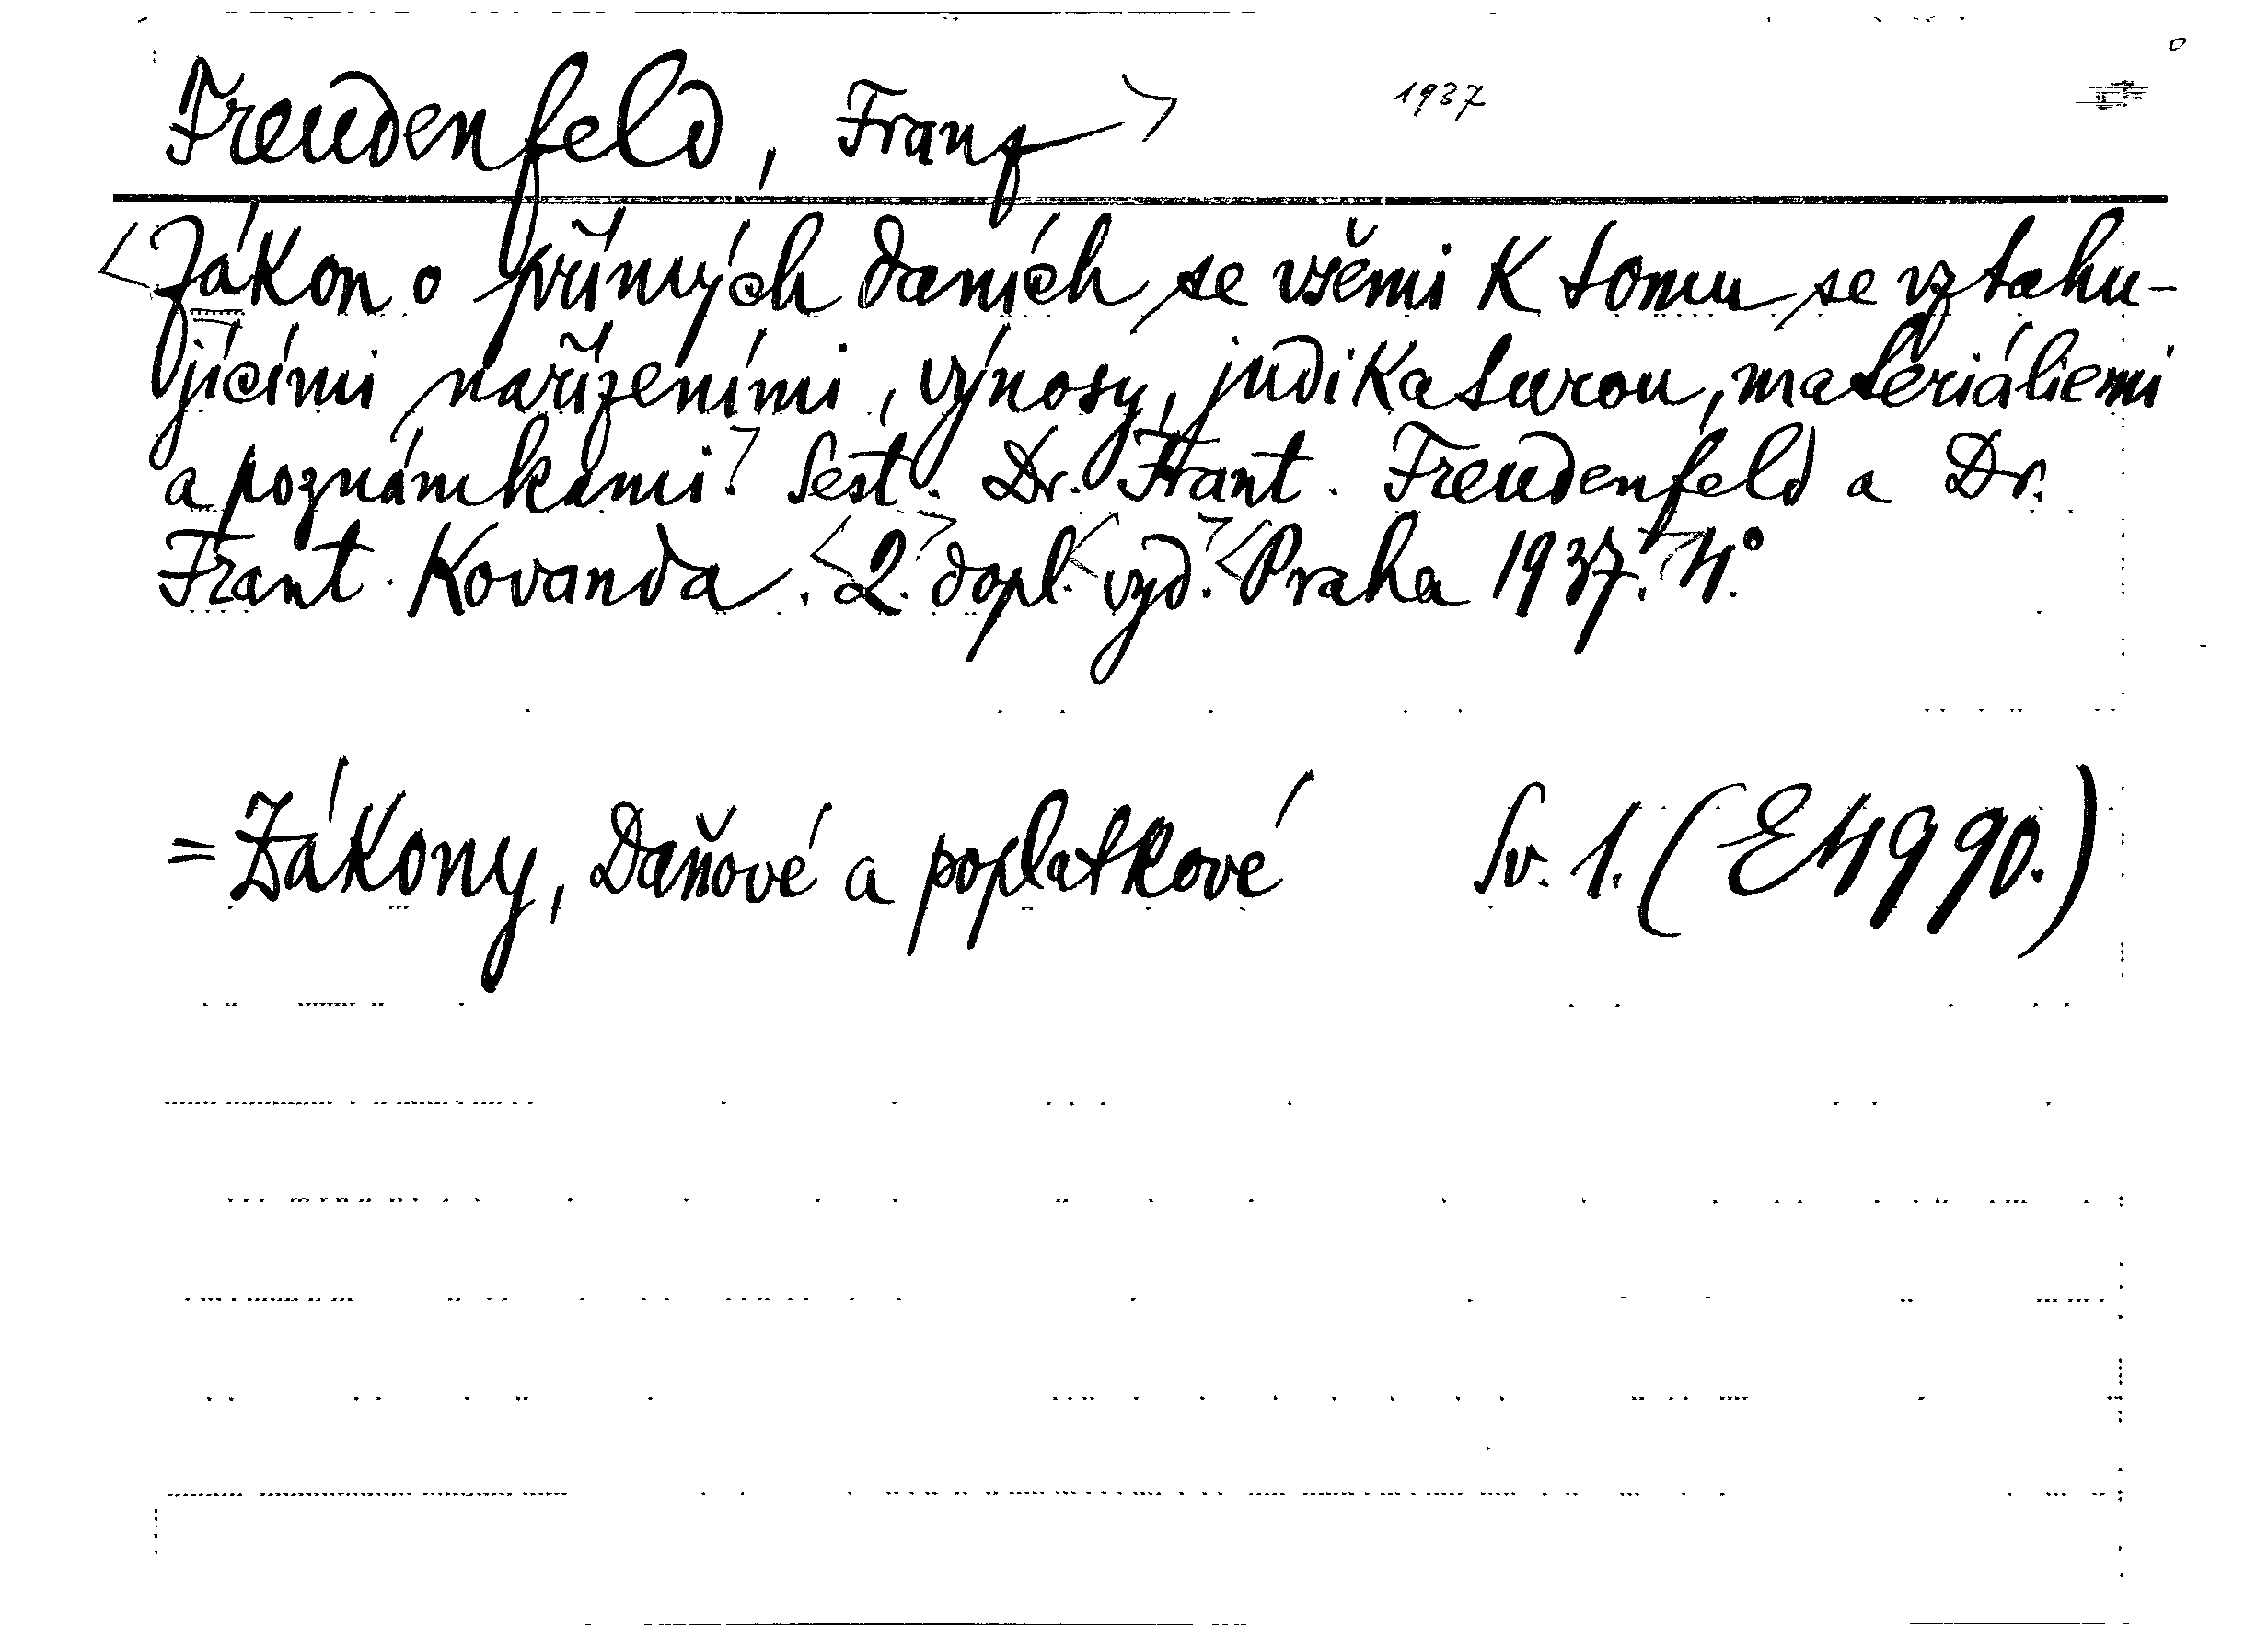 Freudenfeld, Franz> 1937
<Zákon o přímých daních se všemi k tomu se vztahu-
jícími nařízeními, výnosy, judikaturou, materiáliemi
a poznámkami.> Sest. Dr. Frant. Freudenfeld a Dr.
Frant. Kovanda. <2.> dopl. <vyd.> <Praha 1937.> 4°.
= Zákony, Daňové a poplatkové Sv. 1. (E4990.)